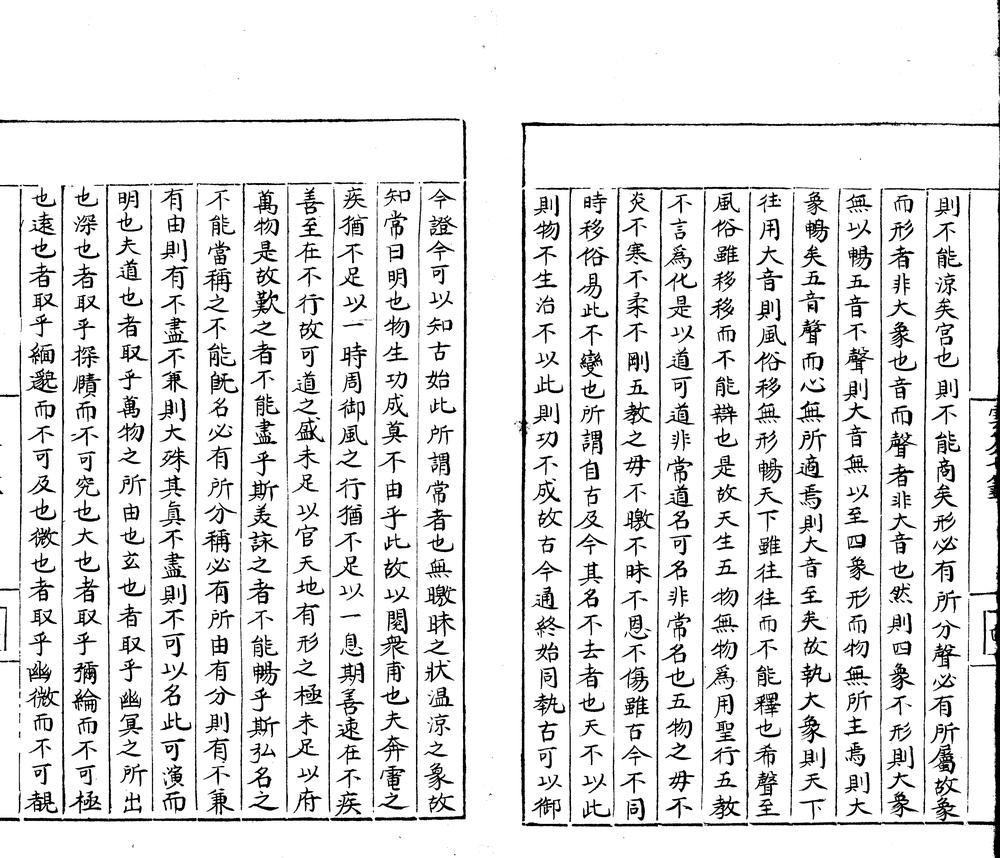 則不能涼矣宮也則不能商矣形必有所分聲必有所屬故象
而形者非大象也音而聲者非大音也然則四象不形則大象
無以暢五音不聲則大音無以至四象形而物無所主焉則大
象暢矣五音聲而心無所適焉則大音至矣故執大象則天下
往用大音則風俗移無形暢天下雖往往而不能釋也希聲至
風俗雖移移而不能辯也是故天生五物無物爲用聖行五教
不言爲化是以道可道非常道名可名非常名也五物之毋不
炎不寒不柔不剛五教之毋不皦不昧不恩不傷雖古今不同
時移俗易此不變也所謂自古及今其名不去者也天不以此
則物不生治不以此則功不成故古今通終始同執古可以御
今證今可以知古始此所謂常者也無皦昧之狀温涼之象故
知常曰明也物生功成莫不由乎此故以閱衆甫也夫奔電之
疾猶不足以一時周御風之行猶不足以一息期善速在不疾
善至在不行故可道之盛未足以官天地有形之極未足以府
萬物是故歎之者不能盡乎斯美詠之者不能暢乎斯弘名之
不能當稱之不能旣名必有所分稱必有所由有分則有不兼
有由則有不盡不兼則大殊其眞不盡則不可以名此可演而
明也夫道也者取乎萬物之所由也玄也者取乎幽冥之所出
也深也者取乎探賾而不可究也大也者取乎彌綸而不可極
也遠也者取乎緬邈而不可及也微也者取乎幽微而不可覩